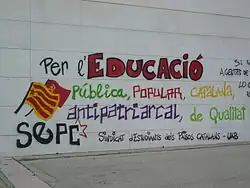 Per l'EDUCACIÓ
Pública, POPULAR, CATALANA,
antipatriarcal, de Qualitat
SEPC
SINDICAT d'ESTUDIANTS dels PAÏSOS CATALANS - UAB